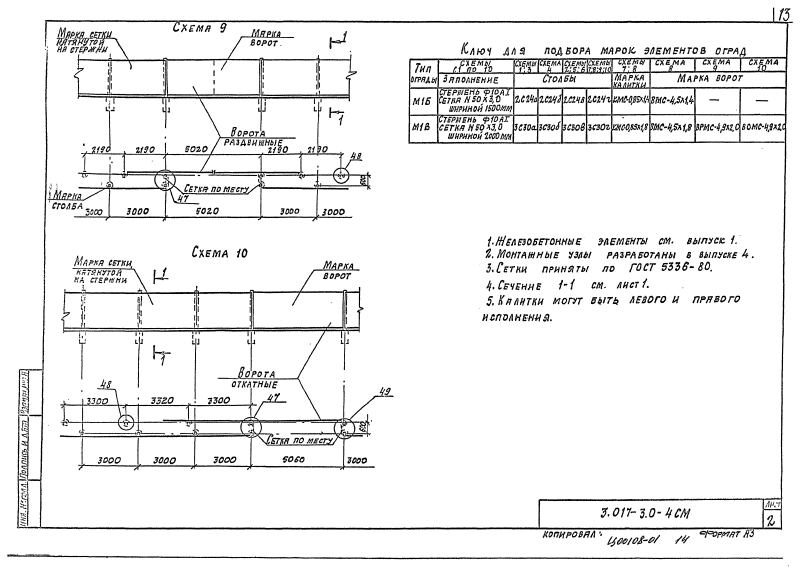 13
Схема 9
Марка сетки
натянутой
на стержни
Марка
ворот
1
1
Ворота
раздвижные
2190 2190 5020 2190 2190
48
600
Марка
столба
47
Сетка по месту
3000 3000 5020 3000 3000
Схема 10
Марка сетки
натянутой
на стержни
Марка
ворот
1
1
Ворота
откатные
48
3300 3320 3300
47
49
600
Сетка по месту
3000 3000 3000 5060 3000
Ключ для подбора марок элементов оград
Тип ограды
Схемы с 1 по 10 Схемы 1;3 Схема 4 Схемы Схемы Схемы 7;8 Схема 8 Схема 9 Схема 10
Заполнение Столбы Марка калитки Марка ворот
М1Б Стержень Ф10АI Сетка N 50×3,0 шириной 1500мм 2С24а 2С24б 2С24в 2С24г КМС-0,85×1,4 ВМС-4,5×1,4 — —
М1В Стержень Ф10АI Сетка N 50×3,0 шириной 2000мм 3С30а 3С30б 3С30в 3С30г КМС-0,85×1,8 ВМС-4,5×1,8 ВРМС-4,9×2,0 ВОМС-4,9×2,0
1. Железобетонные элементы см. выпуск 1.
2. Монтажные узлы разработаны в выпуске 4.
3. Сетки приняты по ГОСТ 5336-80.
4. Сечение 1-1 см. лист 1.
5. Калитки могут быть левого и прявого
исполнения.
Инв. N подл. Подпись и дата Взам. инв. N
3.017-3.0-4СМ
Лист
2
Копировал: Ц00108-01 14 Формат А3